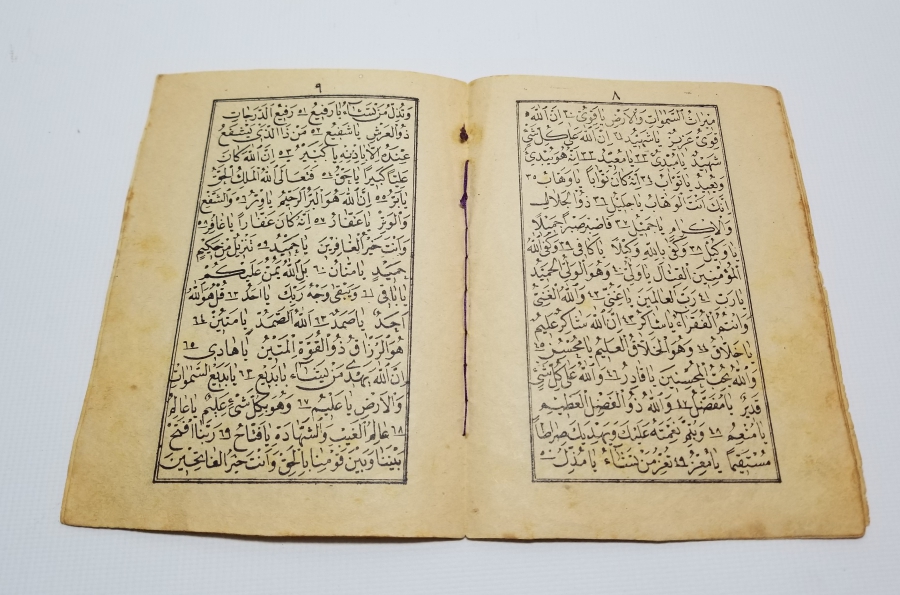 ٨
ميراث السموات والارض ياقوى ٣٠ ان الله
قوى عزيز ياشهيد ٣١ ان الله على كل شئ
شهيد يامبدئ ٣٢ يامعيد ٣٣ انه هو يبدئ
ويعيد ياتواب ٣٤ انه كان توابا ياوهاب ٣٥
انك انت الوهاب ياجليل ٣٦ ذو الجلال
والاكرام ياجميل ٣٧ فاصبر صبرا جميلا
ياوكيل ٣٨ وكفى بالله وكيلا ياكافى ٣٩ وكفى الله
المؤمنين القتال ياولى ٤٠ وهو الولى الحميد
يارب ٤١ رب العالمين ياغنى ٤٢ والله الغنى
وانتم الفقراء ياشاكر ٤٣ ان الله شاكر عليم
ياخلاق ٤٤ وهو الخلاق العليم يامحسن ٤٥
والله يحب المحسنين ياقادر ٤٦ والله على كل شئ
قدير يامفضل ٤٧ والله ذو الفضل العظيم
يامنعم ٤٨ ويتم نعمته عليك ويهديك صراطا
مستقيما يامعز ٤٩ تعز من تشاء يامذل ٥٠
٩
وتذل من تشاء يارفيع ٥١ رفيع الدرجات
ذو العرش ياشفيع ٥٢ من ذا الذى يشفع
عنده الا باذنه ياكبير ٥٣ ان الله كان
عليا كبيرا ياحق ٥٤ فتعالى الله الملك الحق
يابر ٥٥ ان الله هو البر الرحيم ياوتر ٥٦ والشفع
والوتر ياغفار ٥٧ انه كان غفارا ياغافر ٥٨
وانت خير الغافرين ياحميد ٥٩ تنزيل من حكيم
حميد يامنان ٦٠ بل الله يمن عليكم
ياباقى ٦١ ويبقى وجه ربك يااحد ٦٢ قل هو الله
احد ياصمد ٦٣ الله الصمد يامتين ٦٤
هو الرزاق ذو القوة المتين ياهادى ٦٥
ان الله يهدى من يشاء يابديع ٦٦ بديع السموات
والارض ياعليم ٦٧ وهو بكل شئ عليم ياعالم
٦٨ عالم الغيب والشهادة يافتاح ٦٩ ربنا افتح
بيننا وبين قومنا بالحق وانت خير الفاتحين